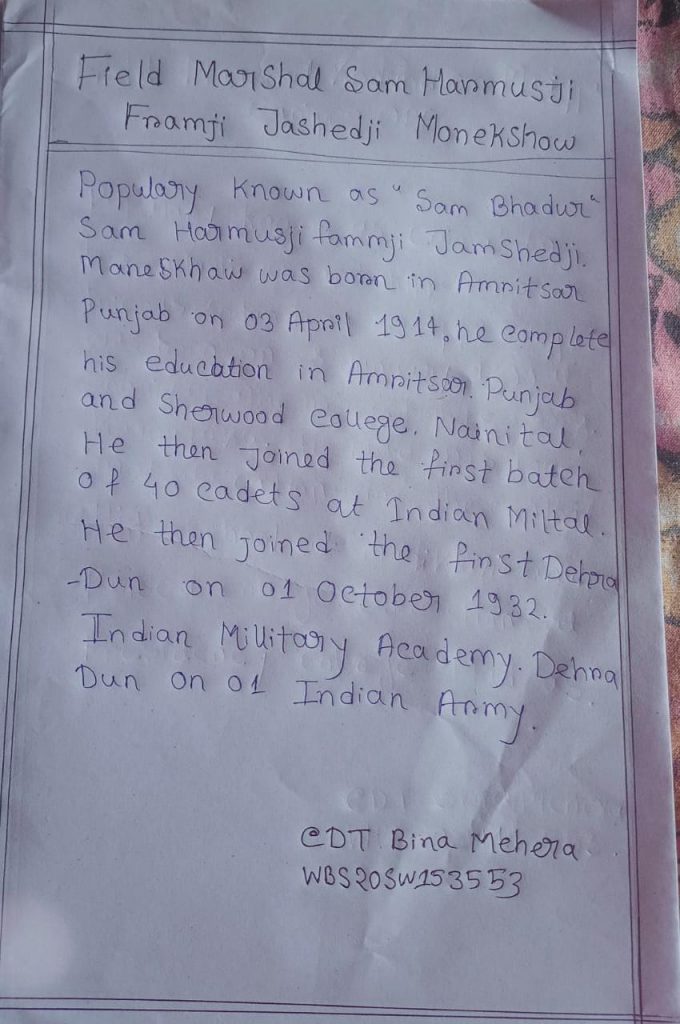 Field Marshal Sam Harmusji
Framji Jashedji Monekshow
Populary Known as "Sam Bhadur"
Sam Harmusji fammji Jamshedji.
Maneskhaw was born in Amritsar
Punjab on 03 April 1914, he complete
his education in Amritsar. Punjab
and Sherwood College, Nainital,
He then joined the first batch
of 40 cadets at Indian Miltal.
He then joined the first Dehra
-Dun on 01 October 1932.
Indian Millitary Academy. Dehra
Dun on 01 Indian Army.
CDT Bina Mehera
WBS20SW153553